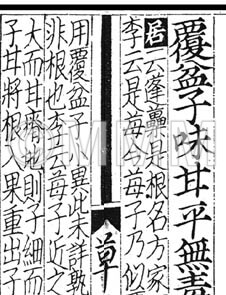 覆盆子味甘平無毒
居 云蓬虆是根名方家
李云是莓子 莓子乃似覆
草
用覆盆子小異此未詳孰
非根也李云莓子近之
大而甘瘠地則子細而
子甘將根入果重出子